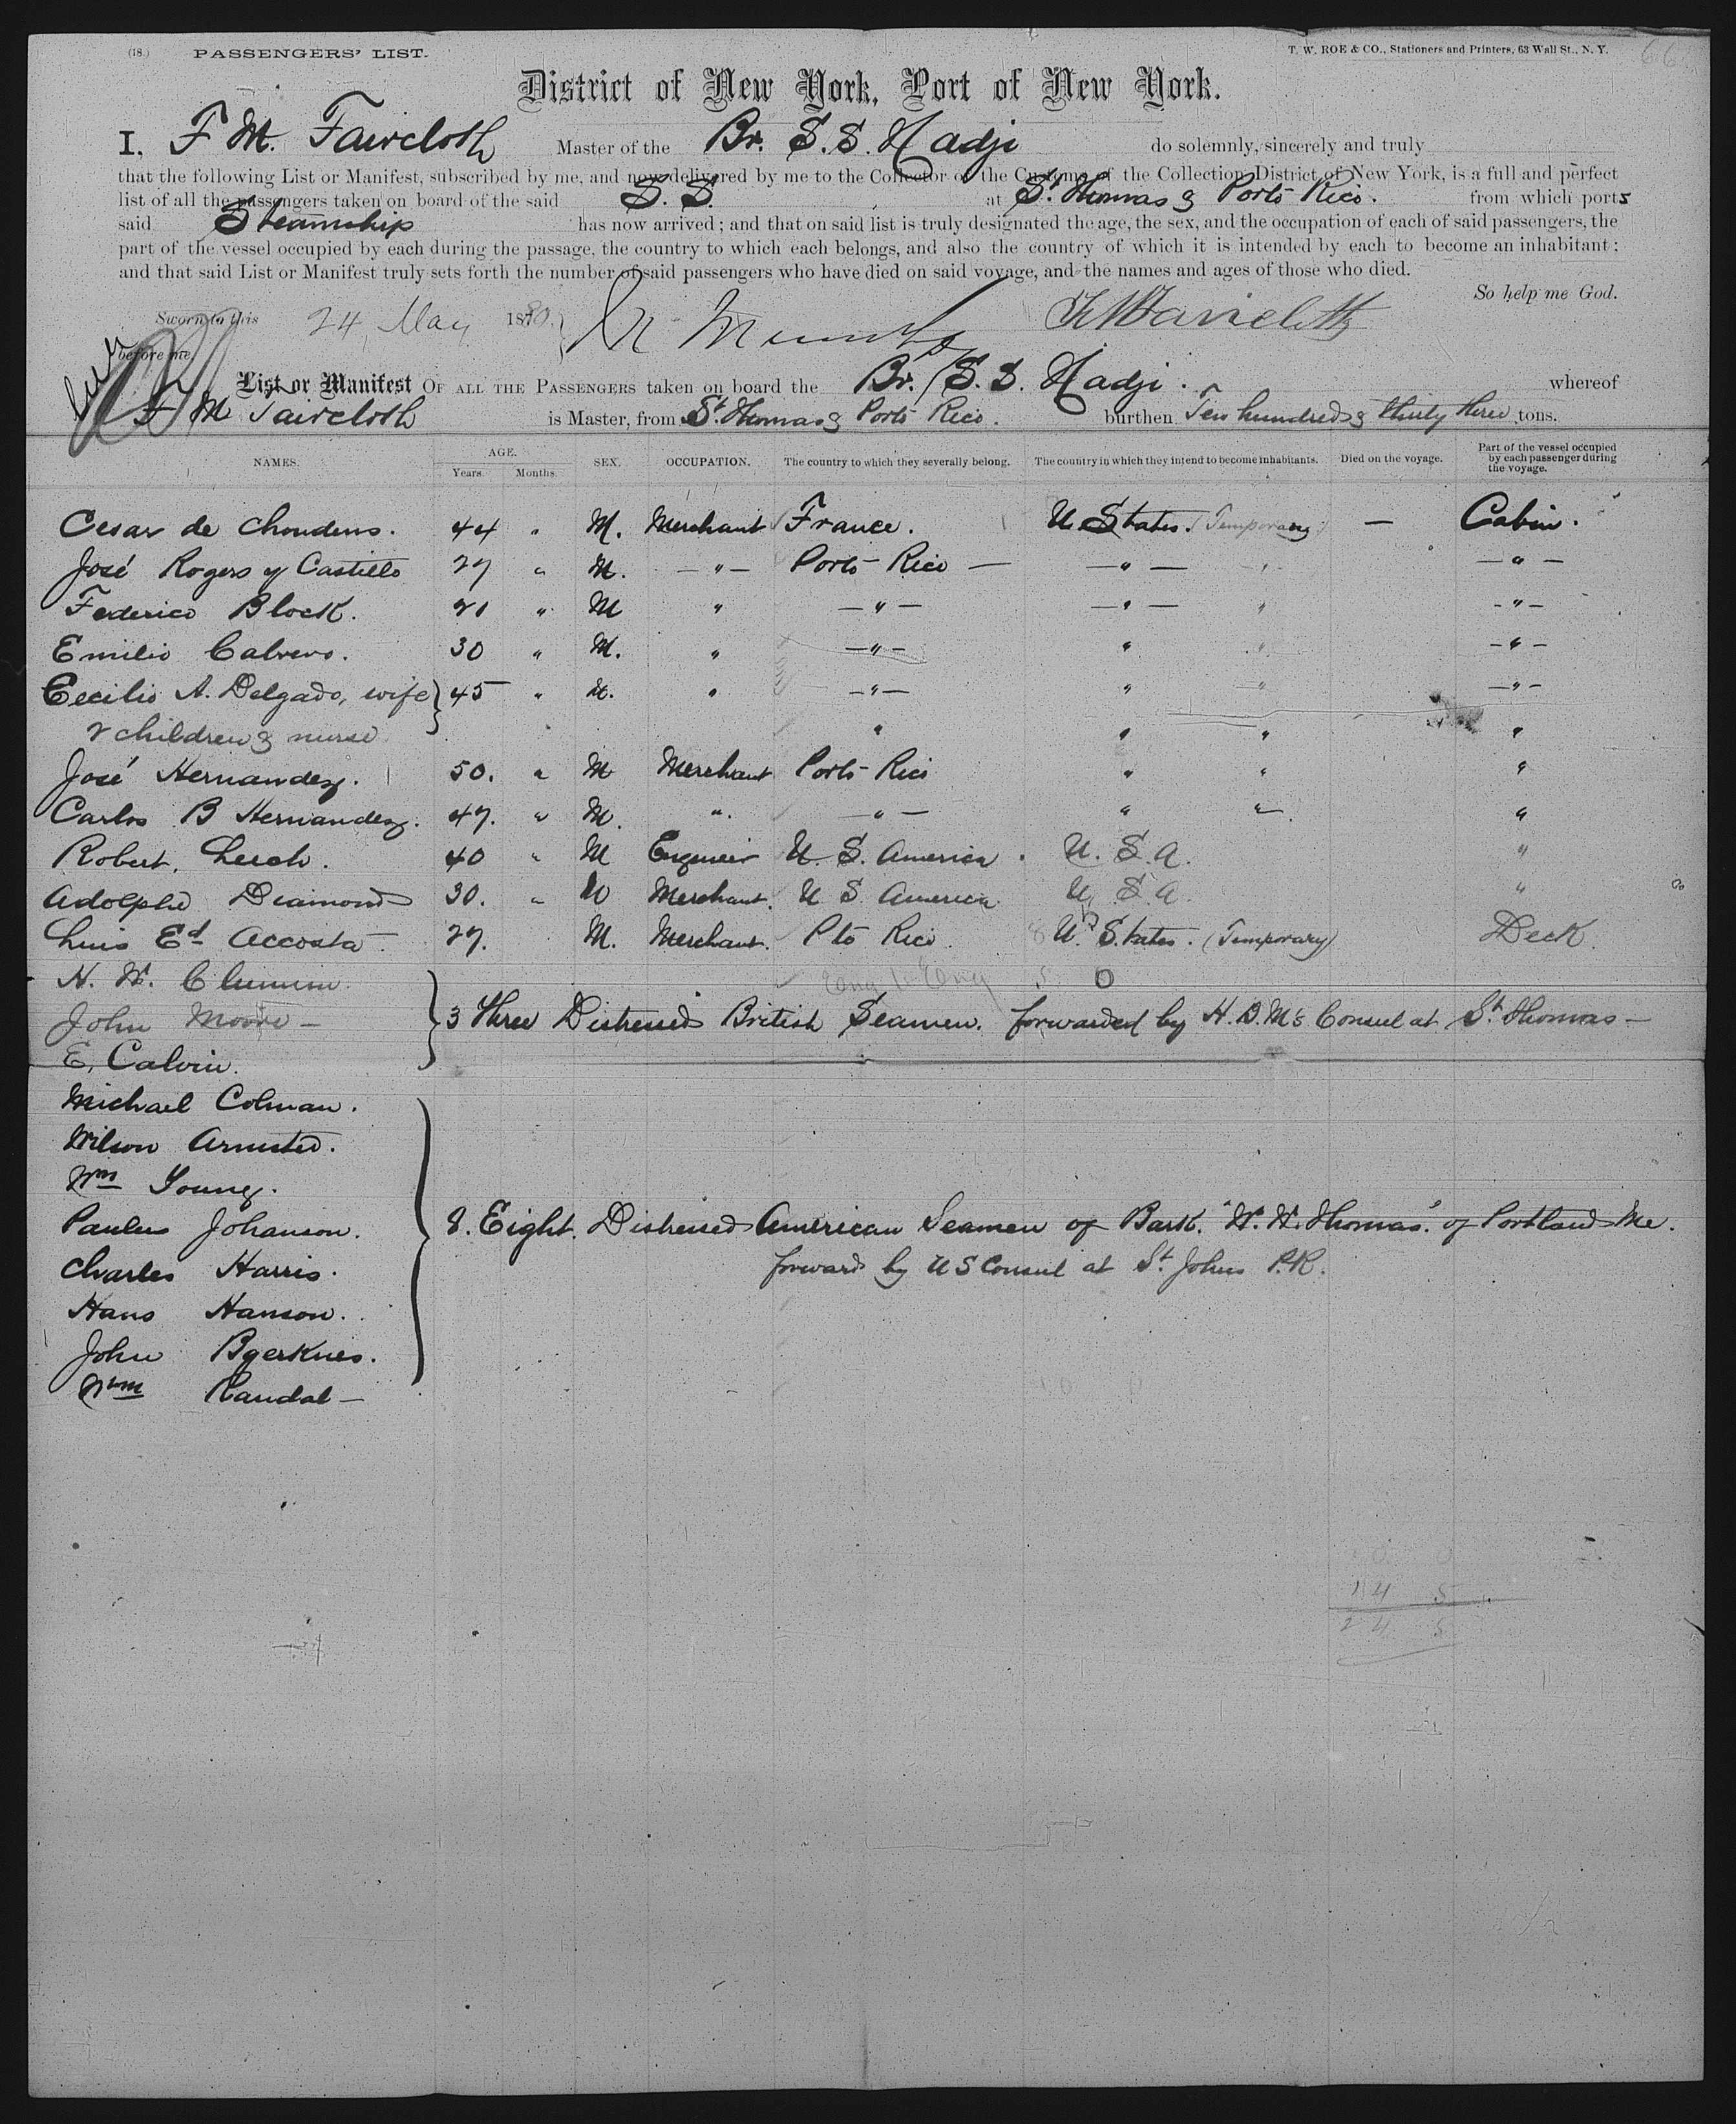 (18.) PASSENGERS' LIST. T. W. ROE & CO., Stationers and Printers, 63 Wall St., N. Y. 66
District of New York, Port of New York.
I, F. M. Faircloth Master of the Br. S.S. Hadji do solemnly, sincerely and truly
that the following List or Manifest, subscribed by me, and now delivered by me to the Collector of the Customs of the Collection District of New York, is a full and perfect
list of all the passengers taken on board of the said S. S. at St. Thomas & Porto Rico. from which ports
said Steamship has now arrived; and that on said list is truly designated the age, the sex, and the occupation of each of said passengers, the
part of the vessel occupied by each during the passage, the country to which each belongs, and also the country of which it is intended by each to become an inhabitant;
and that said List or Manifest truly sets forth the number of said passengers who have died on said voyage, and the names and ages of those who died.
So help me God.
Sworn to this 24 May 1880. F M Faircloth
before me
List or Manifest OF ALL THE PASSENGERS taken on board the Br. S.S. Hadji. whereof
F M Faircloth is Master, from St. Thomas & Porto Rico. burthen Ten hundred & thirty three tons.
NAMES. AGE. Years. Months. SEX. OCCUPATION. The country to which they severally belong. The country in which they intend to become inhabitants. Died on the voyage. Part of the vessel occupied by each passenger during the voyage.
Cesar de Choudens. 44 " M. Merchant France. U. States. (Temporary) — Cabin.
José Rogers y Castillo 27 " M. — " — Porto Rico — — " — " — " —
Federico Block. 21 " M " — " — — " — " - " -
Emilio Cabrero. 30 " M. " — " — " " - " -
Cecilio A. Delgado, wife } 45 " M. " — " — " " — " -
2 children & nurse " " " "
José Hernandez. 50. " M Merchant Porto Rico " " "
Carlos B Hernandez. 47. " M. ". — " — " " "
Robert. Lerch. 40 " M Engineer U. S. America. U. S. A. "
Adolphe Diamond 30. " M Merchant. U S America U. S. A. "
Luis Ed. Accosta. 27. M. Merchant. Pto Rico. U. States. (Temporary) Deck.
H. W. Clumim.
John Moore — } 3 Three Distressed British Seamen. forwarded by H.B.M's Consul at St. Thomas —
E, Calvin.
Michael Colman.
Wilson Armsted.
Wm Young.
Paulus Johanson. } 8. Eight. Distressed American Seamen of Bark. "W. W. Thomas". of Portland Me.
Charles Harris. forward by US Consul at St. Johns P.R.
Hans Hanson.
John Bgerknes.
Wm Randal —
14 5
24 5